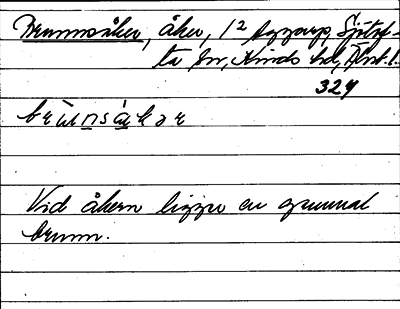 Brunnsåker, åker, 1² Aggarp, Sjötof-
ta sn, Kinds hd, Älvsb. l.
324
brùnsàkər
Vid åkern ligger en gammal
brunn.